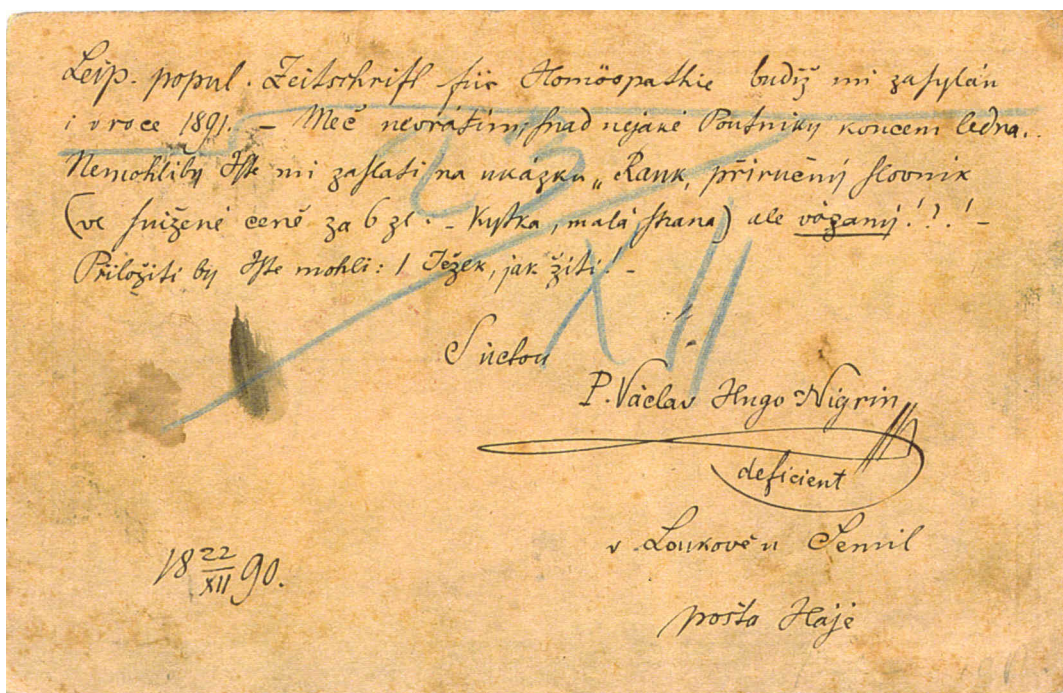 Leip. popul. Zeitschrift für Homöopathie budiž mi zasylán
i v roce 1891. – Meč nevrátím, snad nejaké Poutníky koncem ledna.
Nemohliby Jste mi zaslati na ukázku „Rank, příručný slovník
(ve snížené ceně za 6 zl. – Kytka, malá strana) ale vázaný!?! –
Přiložiti by Jste mohli: 1 Ježek, jak žíti! –
23
XII
S úctou
P. Václav Hugo Nigrin
deficient
v Loukově u Semil
pošta Háje
18 22/XII 90.